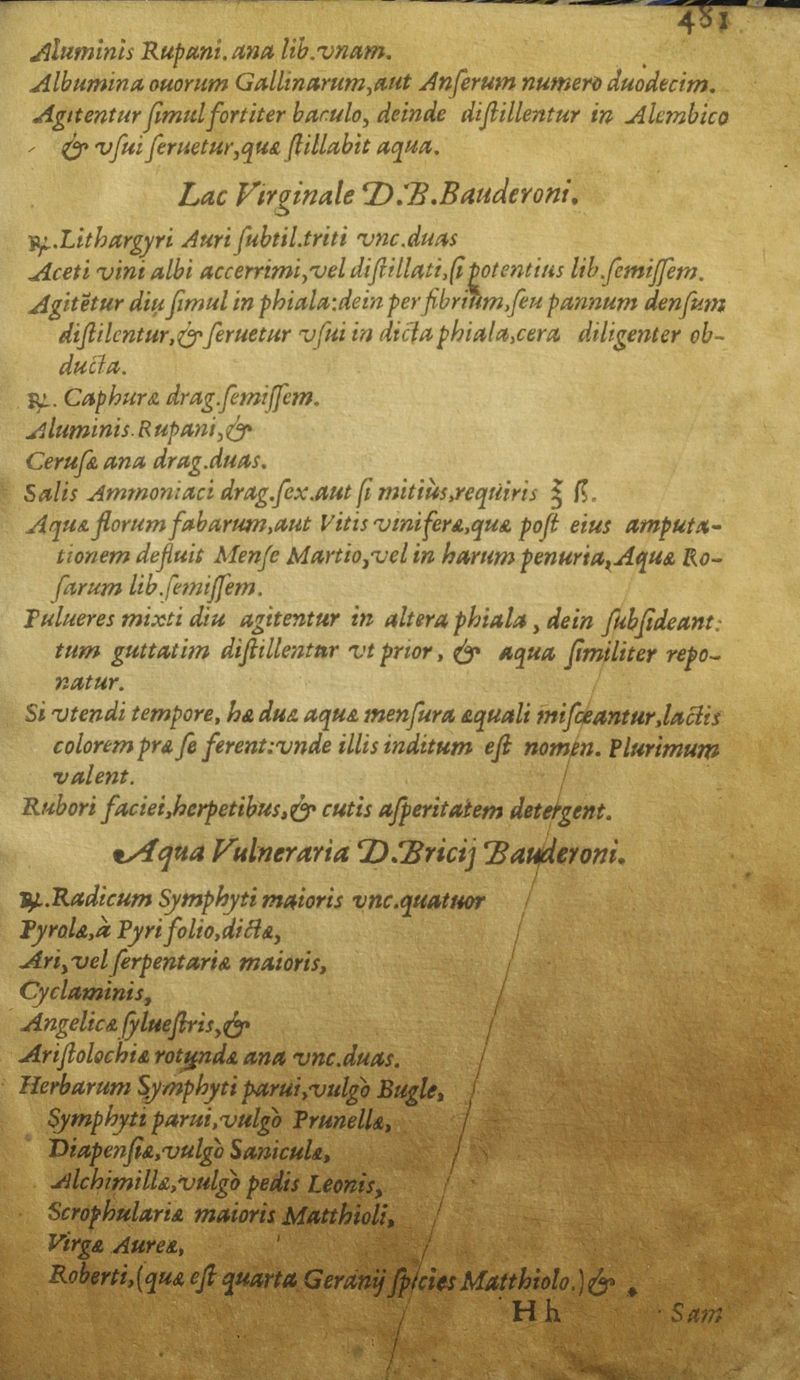 481
Aluminis Rupani. ana lib.vnam.
Albumina ouorum Gallinarum,aut Anſerum numero duodecim.
Agitentur ſimul fortiter baculo, deinde diſtillentur in Alembico
& vſui ſeruetur,quæ ſtillabit aqua.
Lac Virginale D.B.Bauderoni.
℞.Lithargyri Auri ſubtil.triti vnc.duas
Aceti vini albi accerrimi,vel diſtillati,ſi potentius lib.ſemiſſem.
Agitētur diu ſimul in phiala:dein per fibrium,ſeu pannum denſum
diſtilentur,& ſeruetur vſui in dicta phiala,cera diligenter ob-
ducta.
℞. Caphuræ drag.ſemiſſem.
Aluminis.Rupani,&
Ceruſæ ana drag.duas.
Salis Ammoniaci drag.ſex.aut ſi mitiùs,requiris ℥ ß.
Aquæ florum fabarum,aut Vitis viniferæ,quæ poſt eius amputa-
tionem defluit Menſe Martio,vel in harum penuria,Aquæ Ro-
ſarum lib.ſemiſſem.
Pulueres mixti diu agitentur in altera phiala, dein ſubſideant:
tum guttatim diſtillentur vt prior, & aqua ſimiliter repo-
natur.
Si vtendi tempore, hæ duæ aquæ menſura æquali miſceantur,lactis
colorem præ ſe ferent:vnde illis inditum eſt nomen. Plurimum
valent.
Rubori faciei,herpetibus,& cutis aſperitatem detergent.
Aqua Vulneraria D.Bricij Bauderoni.
℞.Radicum Symphyti maioris vnc.quatuor
Pyrolæ,à Pyri folio,dictæ,
Ari,vel ſerpentariæ maioris,
Cyclaminis,
Angelicæ ſylueſtris,&
Ariſtolochiæ rotundæ ana vnc.duas.
Herbarum Symphyti parui,vulgò Bugle,
Symphyti parui,vulgò Prunellæ,
Diapenſiæ,vulgò Saniculæ,
Alchimillæ,vulgò pedis Leonis,
Scrophulariæ maioris Matthioli,
Virgæ Aureæ,
Roberti,(quæ eſt quarta Geranij ſpicies Matthiolo.) &
Hh Sam